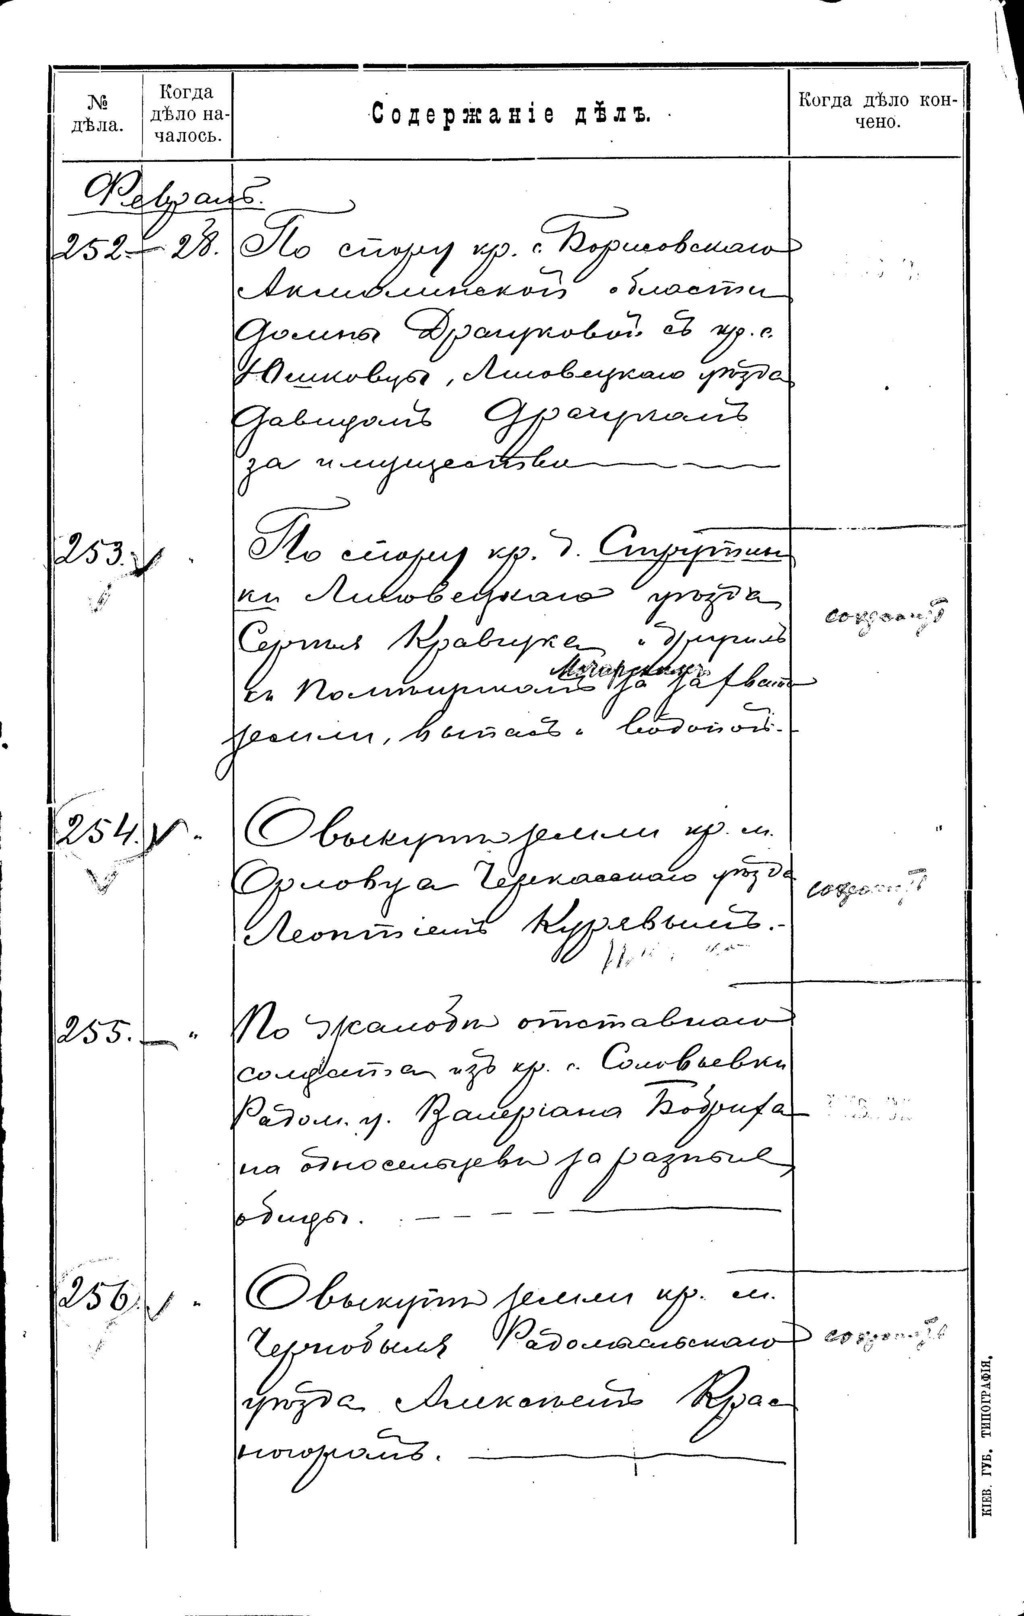 № дѣла.
Когда дѣло на-
чалось.
Содержаніе дѣлъ.
Когда дѣло кон-
чено.
Февраль.
252. — 28.
По спору кр. с. Борисовскаго
Акмолинской области
Домны Драчуковой съ кр. с.
Юшковцы, Липовецкаго уѣзда
Давидомъ Драчукомъ
за имущество
253. "
По спору кр. д. Струтин-
ки Липовецкаго уѣзда
Сергія Кравчука и другихъ
съ за захватъ
земли, выпасъ и водопой.-
сохранить
254. "
О выкупѣ земли кр. м.
Орловца Черкасскаго уѣзда
Леонтіемъ Курявымъ.-
сохранить
255. — "
По жалобѣ отставнаго
солдата изъ кр. с. Соловьевки
Радом. у. Валеріана Бобриха
на односельцевъ за разные
обиды.
256. "
О выкупѣ земли кр. м.
Чернобыля Радомысльскаго
уѣзда Алексѣемъ Крас-
ногоромъ.
сохранить
КІЕВ. ГУБ. ТИПОГРАФІЯ.